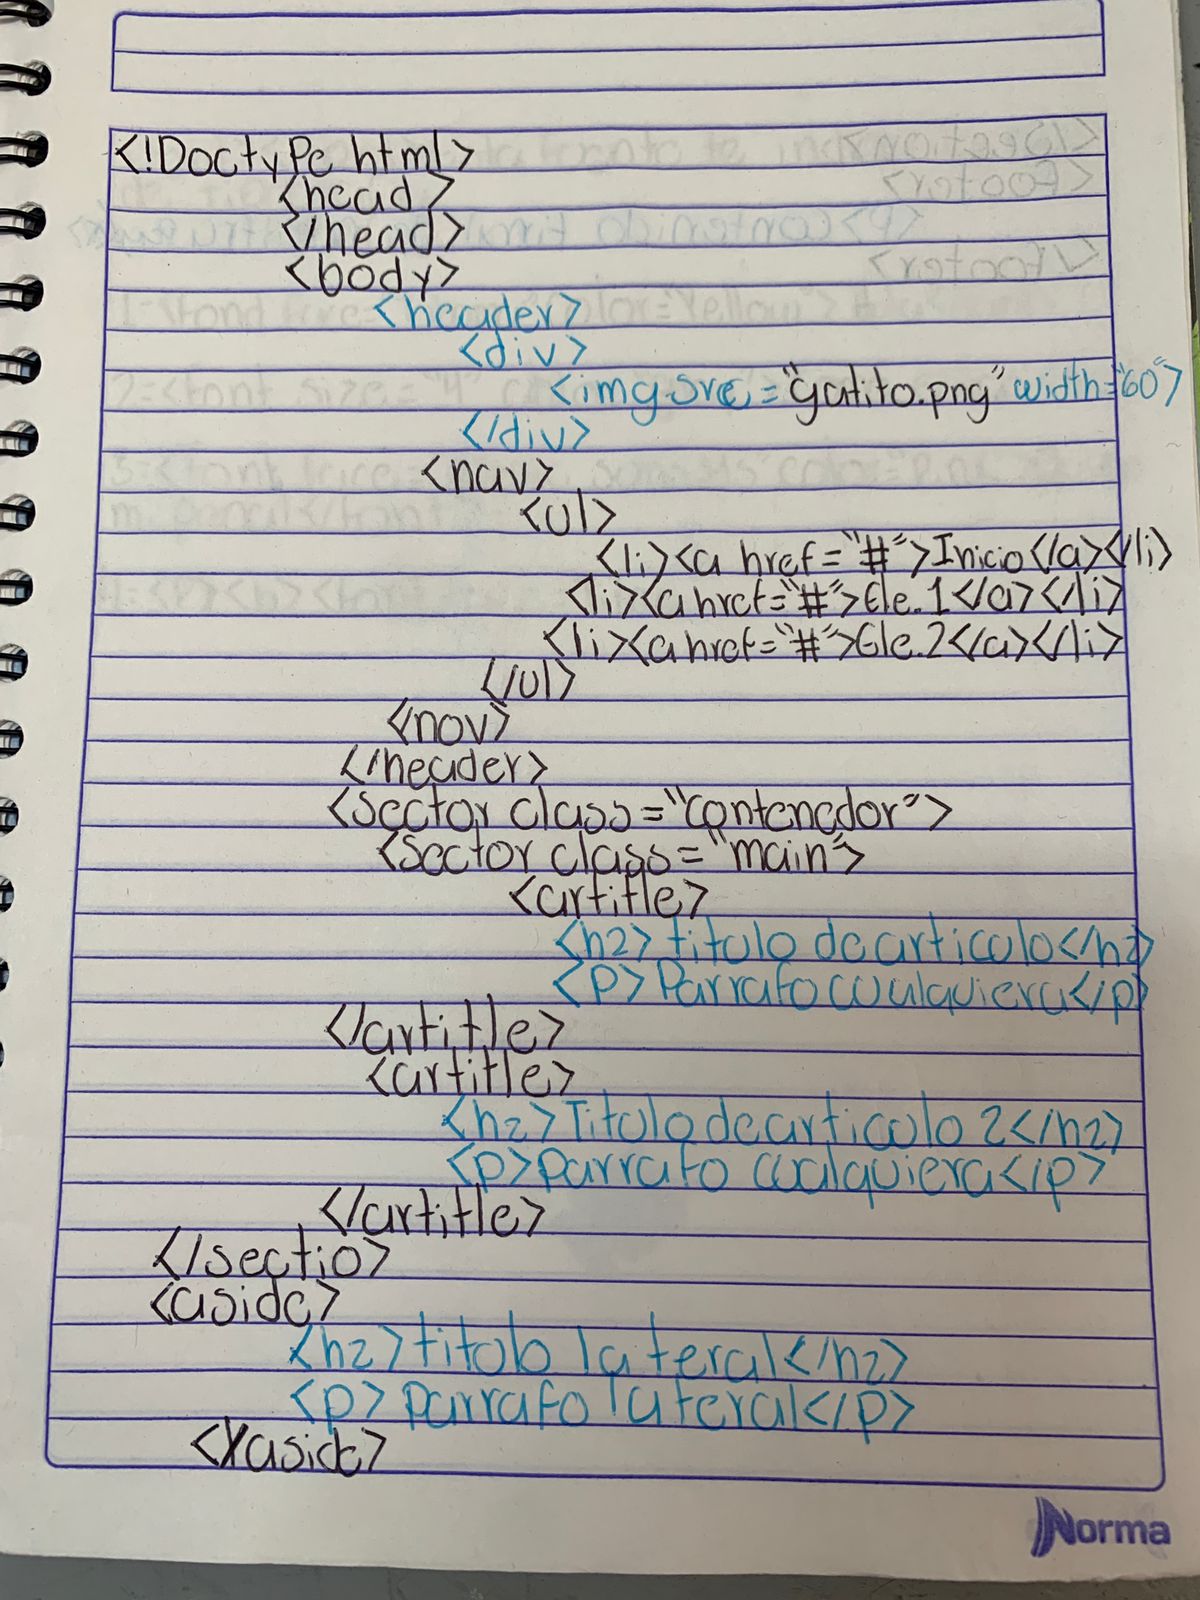 <!DoctyPe html>
<head>
</head>
<body>
<header>
<div>
<img src="gatito.png" width="60">
</div>
<nav>
<ul>
<li><a href="#">Inicio</a></li>
<li><a href="#">Ele.1</a></li>
<li><a href="#">Ele.2</a></li>
</ul>
<nov>
</header>
<sector class="contenedor">
<sector class="main">
<artitle>
<h2>titulo de articulo</h2>
<p>Parrafo cualquiera</p>
</artitle>
<artitle>
<h2>Titulo de articulo 2</h2>
<p>parrafo cualquiera</p>
</artitle>
</sectio>
<aside>
<h2>titulo lateral</h2>
<p>parrafo lateral</p>
</aside>
Norma